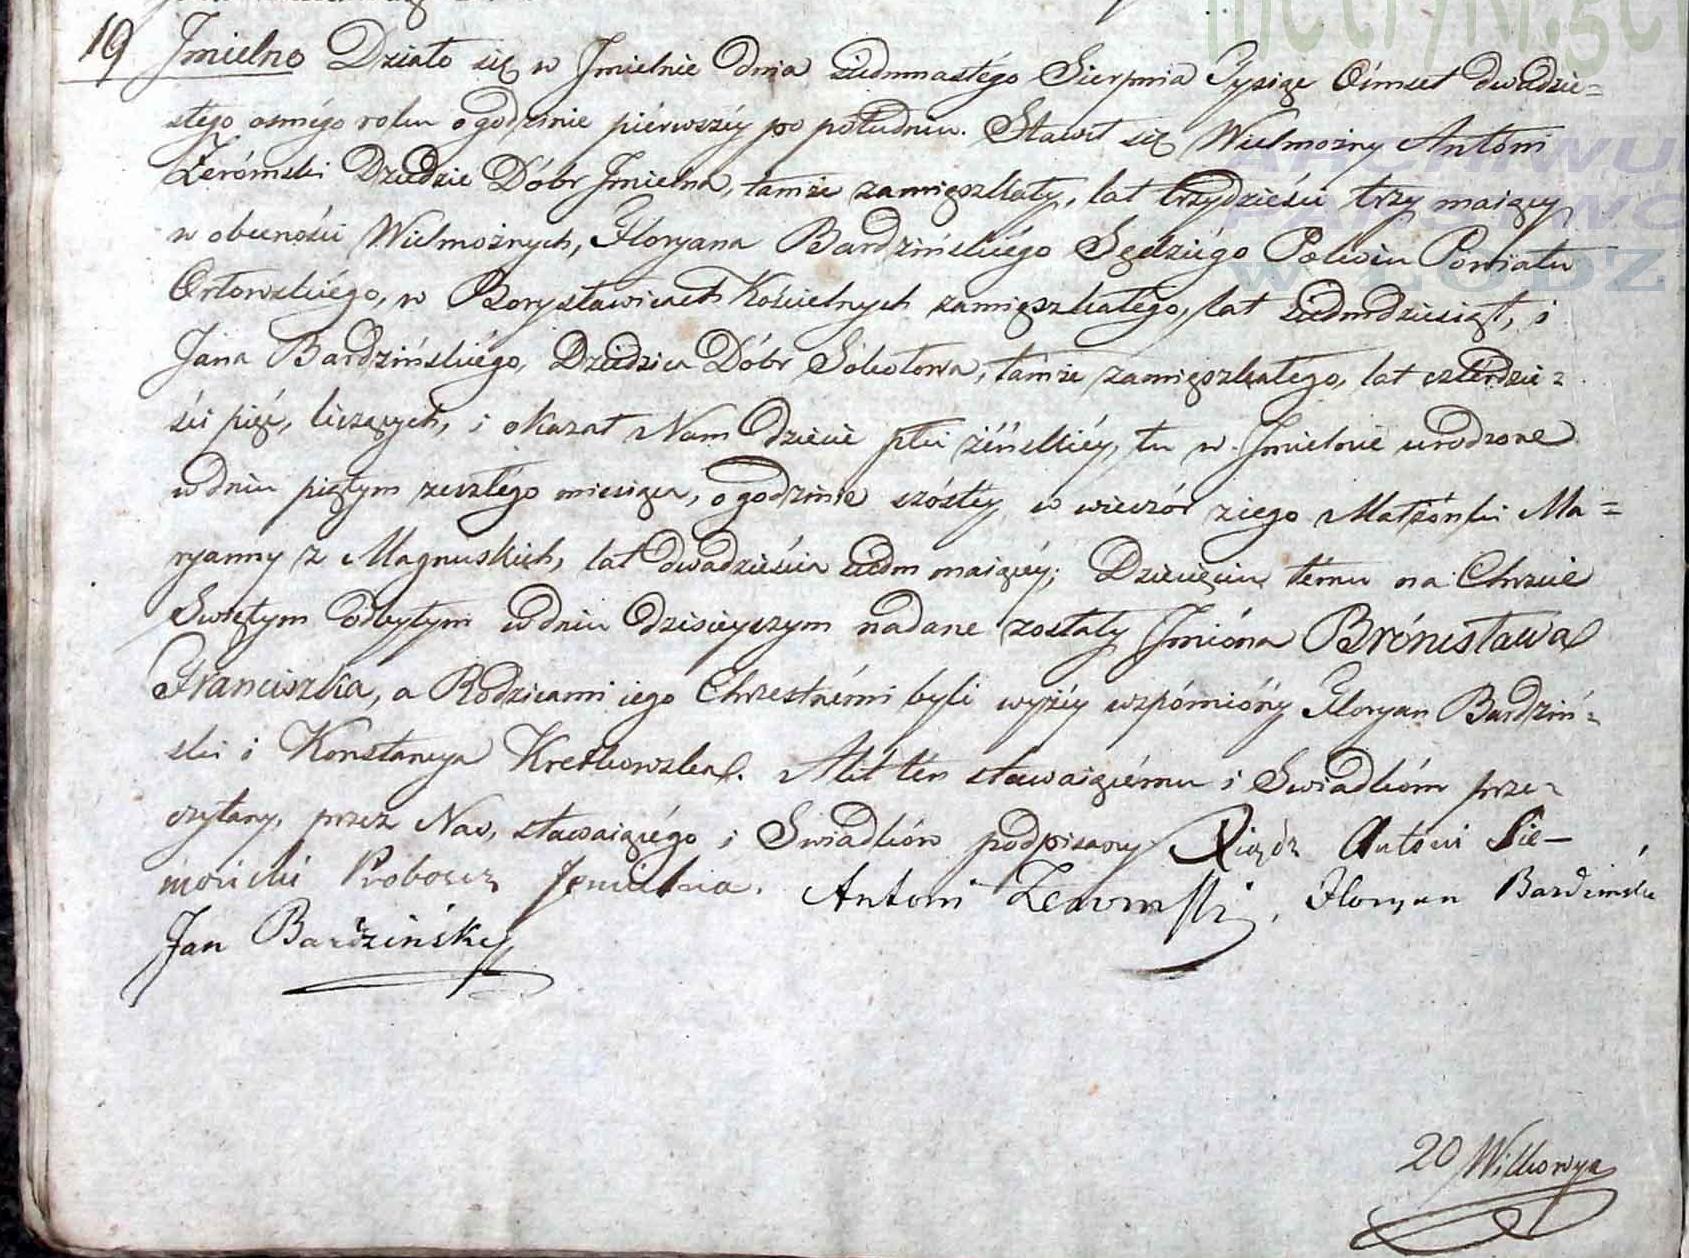 19 Jmielno Działo się w Jmielnie dnia siedmnastego Sierpnia Tysiąc Ośmset dwudzie=
stego osmégo roku o godzinie piérwszéy po południu. Stawił się Wielmożny Antoni
Żerómski Dziedzic Dóbr Jmielna, tamże zamięszkały, lat trzydzieści trzy maiący
w obecności Wielmożnych, Floryana Bardzińskiégo Sędziégo Pokoiu Powiatu
Orłowskiégo, w Borysławicach Kościelnych zamięszkałego, lat siedmdziesiąt, i
Jana Bardzińskiégo, Dziedzica Dóbr Sokołowa, tamże zamięszkałego, lat czterdzie=
ści pięć, liczących, i okazał Nam Dziecie płci żéńskiéy, tu w Jmielnie urodzone
w dniu piątym zeszłego miesiąca, o godzinie szóstéy w wieczór z iego Małżónki Ma=
ryanny z Magnuskich, lat dwadzieścia siedm maiącéy; Dziecięciu temu na Chrzcie
Swiętym odbytym w dniu dzisieyszym nadane zostały Jmióna Brónisława
Franciszka, a Rodzicami iego Chrzestnémi byli wyżéy wspómnióny Floryan Bardziń=
ski i Konstancya Kretkowska. Akt ten stawaiącému i Swiadkóm prze=
czytany, przez Nas, stawaiącégo i Swiadków podpisany Xiądz Antoni Sie—
Proboszcz Jmielna. Antoni Zeromski, Floryan Bardzinski
Jan Bardzińsky
20 Wilkowya
ARCHIWU
PAŃSTWO
W ŁODZ